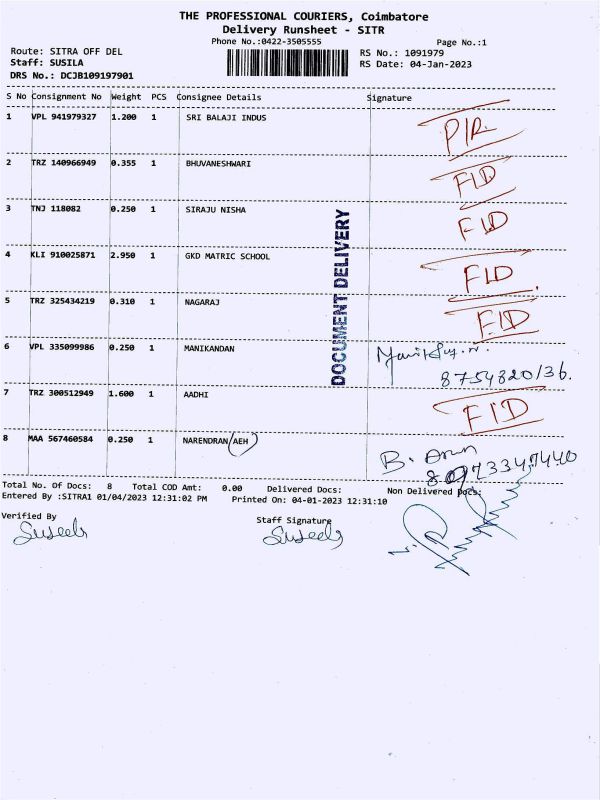 THE PROFESSIONAL COURIERS, Coimbatore
Delivery Runsheet - SITR
Phone No.:0422-3505555 Page No.:1
Route: SITRA OFF DEL RS No.: 1091979
Staff: SUSILA RS Date: 04-Jan-2023
DRS No.: DCJB109197901
S No Consignment No Weight PCS Consignee Details Signature
1 VPL 941979327 1.200 1 SRI BALAJI INDUS
2 TRZ 140966949 0.355 1 BHUVANESHWARI FLD
3 TNJ 118082 0.250 1 SIRAJU NISHA FLD
4 KLI 910025871 2.950 1 GKD MATRIC SCHOOL FLD
5 TRZ 325434219 0.310 1 NAGARAJ FLD
DOCUMENT DELIVERY
6 VPL 335099986 0.250 1 MANIKANDAN
8754820136.
7 TRZ 300512949 1.600 1 AADHI FLD
8 MAA 567460584 0.250 1 NARENDRAN(AEH) B. Arun
Total No. Of Docs: 8 Total COD Amt: 0.00 Delivered Docs: Non Delivered Docs:
Entered By :SITRA1 01/04/2023 12:31:02 PM Printed On: 04-01-2023 12:31:10
Verified By Staff Signature
Suseela Suseela